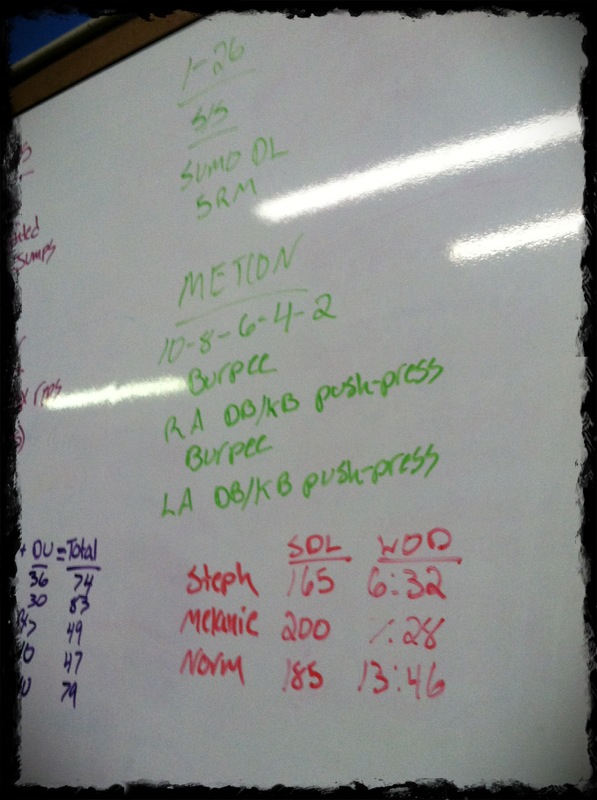 1-26
S/S
SUMO DL
5RM
METCON
10-8-6-4-2
Burpee
RA DB/KB push-press
Burpee
LA DB/KB push-press
SDL WOD
Steph 165 6:32
Melanie 200 :28
Norm 185 13:46
+ DU = Total
36 74
30 83
49
47
79